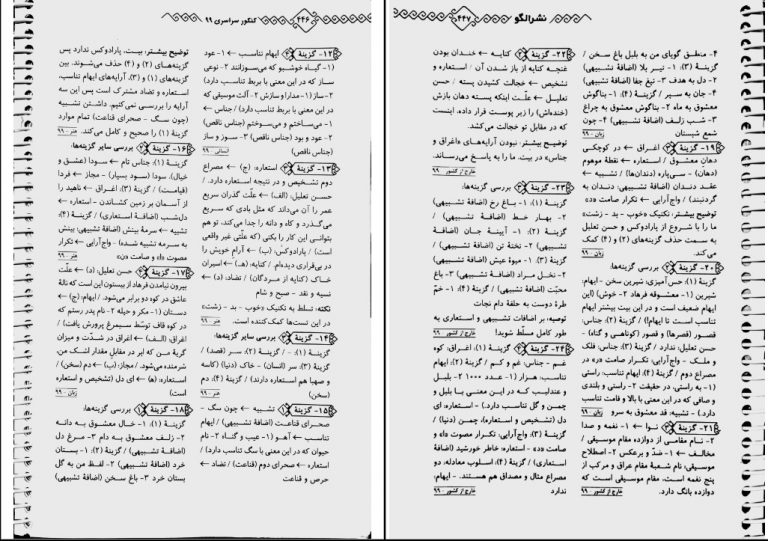 نشرالگو
۴۴۷
۴- منطق گویای من به بلبل باغ سخن /
گزینهٔ (۳): ۱- تیر بلا (اضافهٔ تشبیهی)
۲- دل به هدف ۳- تیغ جفا (اضافهٔ تشبیهی)
۴- جان به سپر / گزینهٔ (۴): ۱- بناگوش
معشوق به ماه ۲- بناگوش معشوق به چراغ
۳- شب زلف (اضافهٔ تشبیهی) ۴- چون
شمع شبستان
زبان - ۹۹
۱۹- گزینهٔ اغراق ← در کوچکی
دهان معشوق / استعاره ← نقطهٔ موهوم
(دهان) - سی‌پاره (دندان‌ها) / تشبیه ←
عقد دندان (اضافهٔ تشبیهی؛ دندان به
گردنبند) / واج‌آرایی ← تکرار صامت «د»
توضیح بیشتر: تکنیک «خوب - بد - زشت»
ما را با شروع از پارادوکس و حسن تعلیل
به سمت حذف گزینه‌های (۲) و (۴) کمک
می‌کند.
زبان - ۹۹
۲۰- گزینهٔ بررسی گزینه‌ها:
گزینهٔ (۱): حس‌آمیزی: شیرین سخن - ایهام:
شیرین ۱- معشوقه فرهاد ۲- خوش) (این
ایهام ضعیف است و در این بیت بیشتر ایهام
تناسب است تا ایهام!) / گزینهٔ (۲): جناس:
قصور (قصرها) و قصور (کوتاهی و گناه) -
حسن تعلیل: ندارد / گزینهٔ (۳): جناس: فلک
و ملک - واج‌آرایی: تکرار صامت «ر» در
مصراع دوم / گزینهٔ (۴): ایهام تناسب: راستی
(۱- به راستی، در حقیقت ۲- راستی و بلندی
و صافی که در این معنی با بالا و قامت تناسب
دارد.) - تشبیه: قد معشوق به سرو
زبان - ۹۹
۲۱- گزینهٔ نوا ← ۱- نغمه و صدا
۲- نام مقامی از دوازده مقام موسیقی /
مخالف ← ۱- ضدّ و برعکس ۲- اصطلاح
موسیقی، نام شعبهٔ مقام عراق و مرکب از
پنج نغمه است، مقام موسیقی است که
دوازده بانگ دارد.
خارج از کشور - ۹۹
۲۲- گزینهٔ کنایه ← خندان بودن
غنچه کنایه از باز شدن آن / استعاره و
تشخیص ← خجالت کشیدن پسته / حسن
تعلیل ← علّت اینکه پسته دهان بازش
(خنده‌اش) را زیر پوست قرار داده، اینست
که در مقابل تو خجالت می‌کشد.
توضیح بیشتر: نبودن آرایه‌های «اغراق و
جناس» در بیت. ما را به پاسخ می‌رساند.
خارج از کشور - ۹۹
۲۳- گزینهٔ بررسی گزینه‌ها:
گزینهٔ (۱): ۱- باغ رخ (اضافهٔ تشبیهی)
۲- بهار خط (اضافهٔ تشبیهی) /
گزینهٔ (۲): ۱- آیینهٔ جان (اضافهٔ
تشبیهی) ۲- تختهٔ تن (اضافهٔ تشبیهی) /
گزینهٔ (۳): ۱- میوهٔ عیش (اضافهٔ تشبیهی)
۲- نخل مراد (اضافهٔ تشبیهی) ۳- باغ
محبّت (اضافهٔ تشبیهی) / گزینهٔ (۴): ۱- خمّ
طرّهٔ دوست به حلقهٔ دام نجات
توصیه: بر اضافات تشبیهی و استعاری به
طور کامل مسلّط شوید!
خارج از کشور - ۹۹
۲۴- گزینهٔ گزینهٔ (۱): اغراق: کوه
غم - جناس: غم و کم / گزینهٔ (۲): ایهام
تناسب: هزار (۱- عدد ۱۰۰۰ ۲- بلبل
و عندلیب که در این معنی با بلبل و
چمن و گل تناسب دارد.) - استعاره: ای
دل (تشخیص و استعاره)، چمن (دنیا) /
گزینهٔ (۳): واج‌آرایی: تکرار مصوت «ا» و
صامت «د» - استعاره: خاطر خورشید (اضافهٔ
استعاری) / گزینهٔ (۴): اسلوب معادله: دو
مصراع مثال و مصداق هم هستند. - ایهام:
ندارد
خارج از کشور - ۹۹
کنکور سراسری ۹۹
۴۴۶
۱۲- گزینهٔ ایهام تناسب ← ۱- عود
(۱- گیاه خوشبو که می‌سوزانند ۲- نوعی
ساز که در این معنی با بربط تناسب دارد)
۲- ساز (۱- مدارا و سازش ۲- آلت موسیقی که
در این معنی با بربط تناسب دارد) / جناس ←
۱- می‌ساختم و می‌سوختم (جناس ناقص)
۲- عود و بود (جناس ناقص) ۳- سوز و ساز
(جناس ناقص)
انسانی - ۹۹
۱۳- گزینهٔ استعاره: (ج) ← مصراع
دوم تشخیص و در نتیجه استعاره دارد. /
حسن تعلیل: (الف) ← علّت گذران سریع
عمر را آن می‌داند که مثل بادی که سریع
می‌گذرد و کاه و دانه را جدا می‌کند، تو هم
بتوانی این کار را بکنی (که علّتی غیر واقعی
است) / پارادوکس: (ب) ← آرام خویش را
در بی‌قراری دیده‌ام. / کنایه: (هـ) ← اسیران
خاک (کنایه از مردگان) / تضاد: (د) ←
نسیه و نقد - صبح و شام
نکته: تسلط به تکنیک «خوب - بد - زشت»
در این تست‌ها کمک‌کننده است.
هنر - ۹۹
۱۴- گزینهٔ بررسی سایر گزینه‌ها:
گزینهٔ (۱): - / گزینهٔ (۲): سر (قصد) /
گزینهٔ (۳): سر (انسان) - خاک (دنیا) (کاسه
و صهبا هم استعاره دارند) / گزینهٔ (۴): دم
(سخن)
هنر - ۹۹
۱۵- گزینهٔ تشبیه ← چون سگ -
صحرای قناعت (اضافهٔ تشبیهی) / ایهام
تناسب ← آهو (۱- عیب و گناه ۲- نام
حیوان که در این معنی با سگ تناسب دارد) /
استعاره ← صحرای دوم (قناعت) / تضاد ←
حرص و قناعت
توضیح بیشتر: بیت، پارادوکس ندارد پس
گزینه‌های (۲) و (۴) حذف می‌شوند. بین
گزینه‌های (۱) و (۳)، آرایه‌های ایهام تناسب،
استعاره و تضاد مشترک است پس این سه
آرایه را بررسی نمی‌کنیم. داشتن تشبیه
(چون سگ - صحرای قناعت) تمام موارد
گزینهٔ (۱) را صحیح و کامل می‌کند.
هنر - ۹۹
۱۶- گزینهٔ بررسی سایر گزینه‌ها:
گزینهٔ (۱): جناس تام ← سودا (عشق و
خیال)، سودا (سود بسیار) - مجاز ← فردا
(قیامت) / گزینهٔ (۳): اغراق ← ناهید را
از آسمان بر زمین کشاندن - استعاره ←
دل‌شب (اضافهٔ استعاری) / گزینهٔ (۴):
تشبیه ← سرمهٔ بینش (اضافهٔ تشبیهی: بینش
به سرمه تشبیه شده) - واج‌آرایی ← تکرار
مصوت «ا» و صامت «ن»
هنر - ۹۹
۱۷- گزینهٔ حسن تعلیل: (د) ← علّت
بیرون نیامدن فرهاد از بیستون این است که نالهٔ
عاشق در کوه دو برابر می‌شود. / ایهام: (ج) ←
دستان (۱- مکر و حیله ۲- نام پدر رستم که
در کوه قاف توسّط سیمرغ پرورش یافت) /
اغراق: (الف) ← اغراق در شدّت و میزان
گریهٔ من که ابر در مقابل مقدار اشک من،
شرمنده می‌شود. / مجاز: (ب) ← دم (سخن) /
استعاره: (ه) ← ای دل (تشخیص و استعاره)
است
زبان - ۹۹
۱۸- گزینهٔ بررسی گزینه‌ها:
گزینهٔ (۱): ۱- خال معشوق به دانه
۲- زلف معشوق به دام ۳- مرغ دل
(اضافهٔ تشبیهی) / گزینهٔ (۲): ۱- بستان
خرد (اضافهٔ تشبیهی) ۲- لفظ من به گل
بستان خرد ۳- باغ سخن (اضافهٔ تشبیهی)